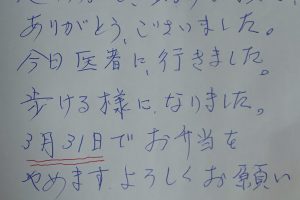 ありがとう、ございました。
今日医者に、行きました。
歩ける様に、なりました。
3月31日でお弁当を
やめます、よろしくお願い